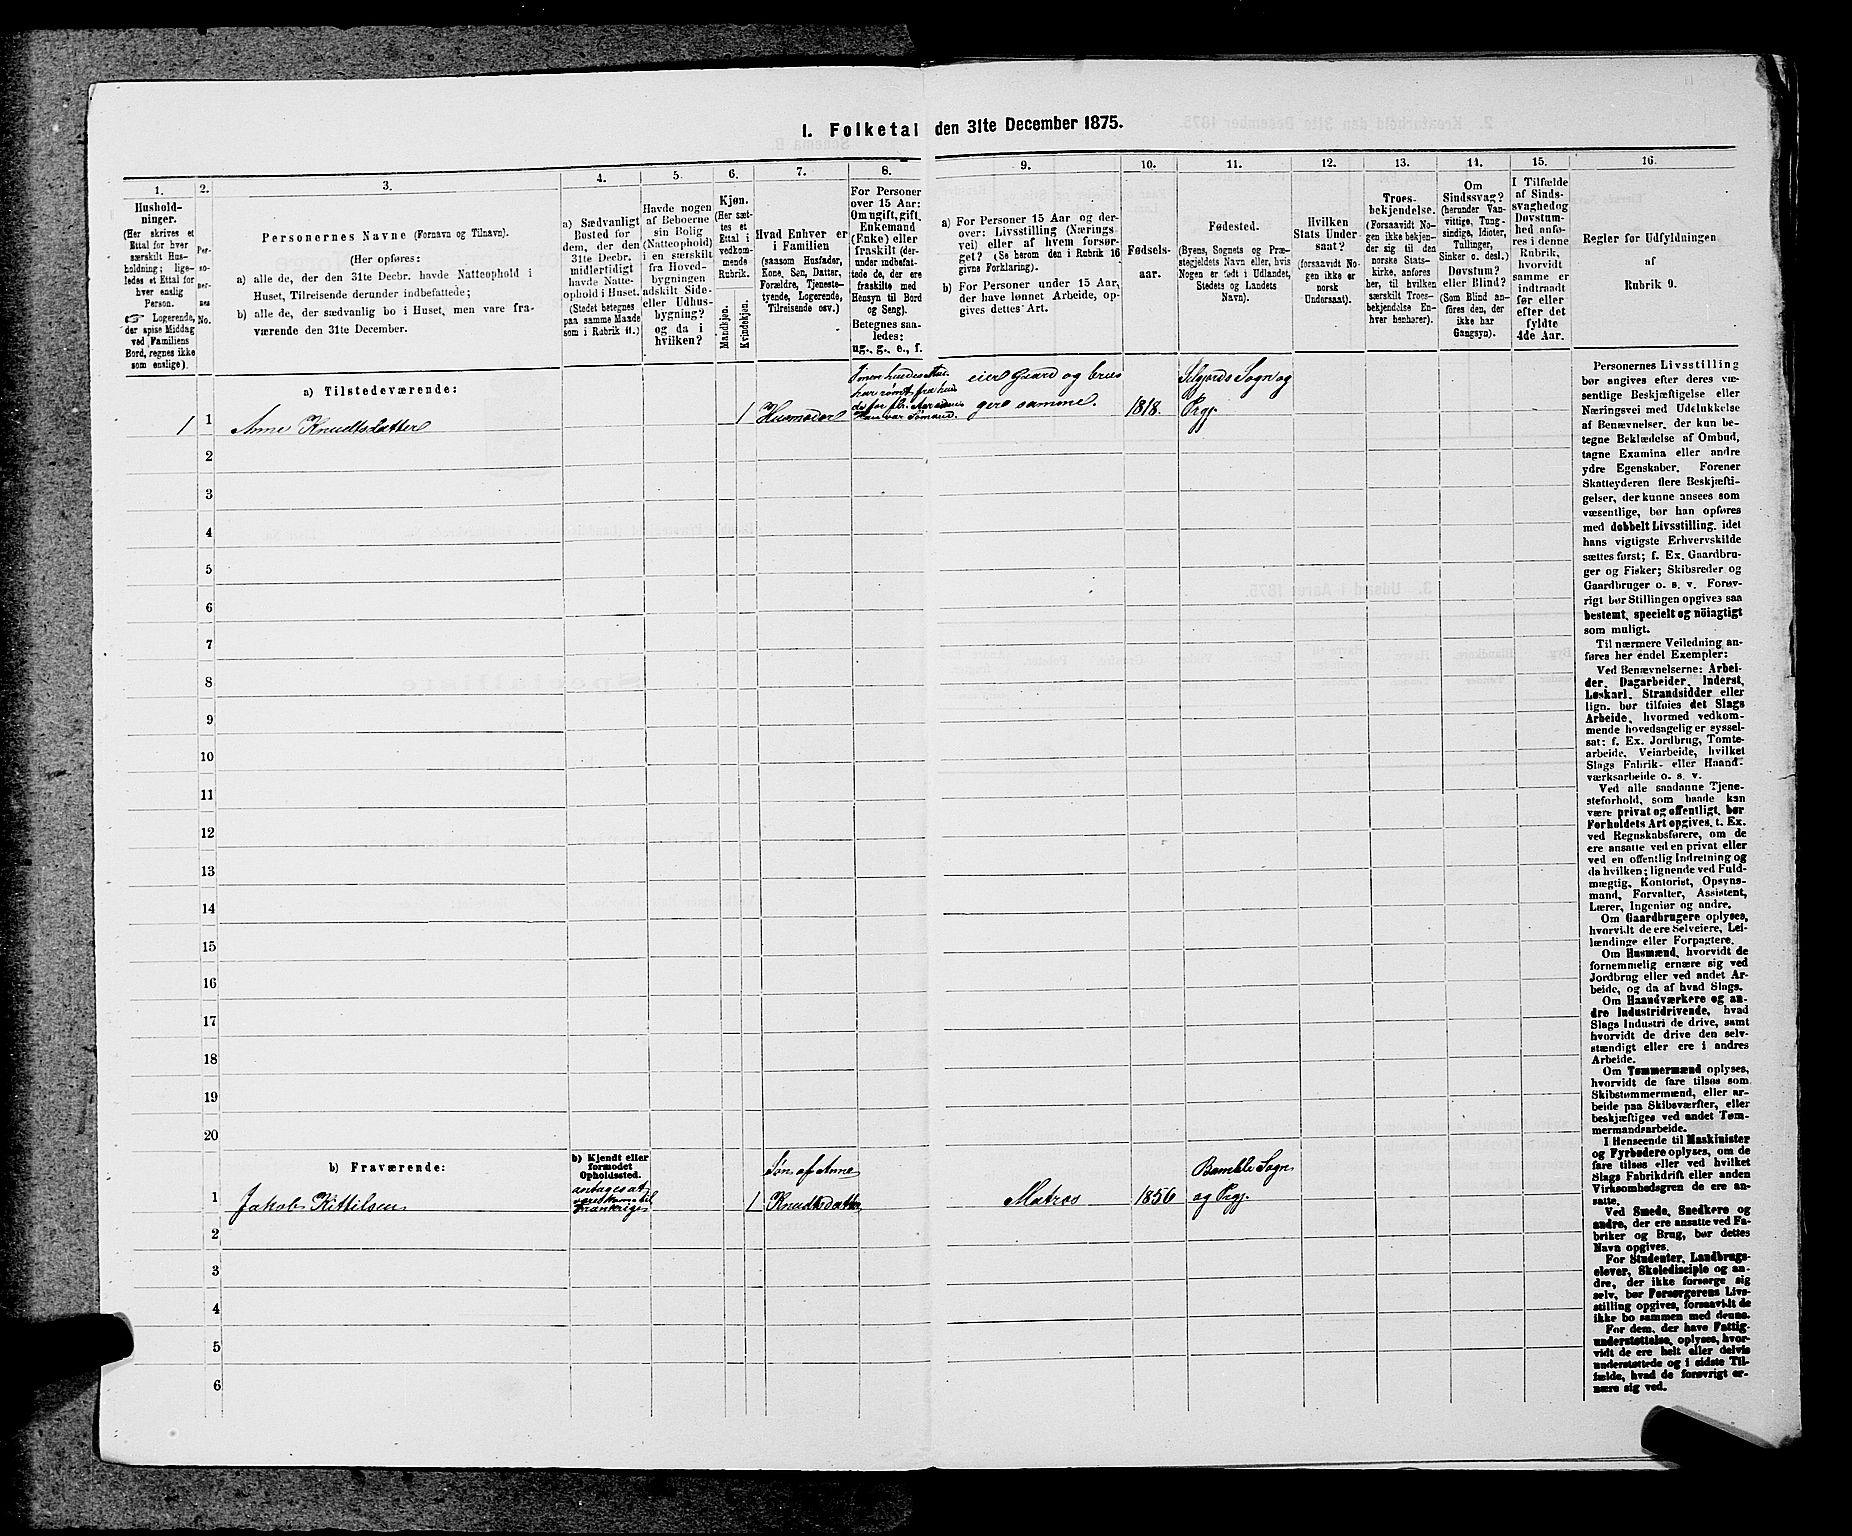 I. Folketal den 31te December 1875.
1.
2.
3.
4.
5.
6.
7.
8.
9.
10.
11.
12.
13.
14.
15.
16.
Hushold-
ninger.
(Her skrives et
Ettal for hver
særskilt Hus-
holdning; lige-
ledes et Ettal for
hver enslig
Person.
☞ Logerende,
der spise Middag
ved Familiens
Bord, regnes ikke
som enslige).
Per-
so-
ner-
nes
No.
Personernes Navne (Fornavn og Tilnavn).
(Her opføres:
a) alle de, der den 31te Decbr. havde Natteophold i
Huset, Tilreisende derunder indbefattede;
b) alle de, der sædvanlig bo i Huset, men vare fra-
værende den 31te December.
a) Sædvanligt
Bosted for
dem, der den
31te Decbr.
midlertidigt
havde Natte-
ophold i Huset.
(Stedet betegnes
paa samme Maade
som i Rubrik 11.)
Havde nogen
af Beboerne
sin Bolig
(Natteophold)
i en særskilt
fra Hoved-
bygningen
adskilt Side-
eller Udhus-
bygning?
og da i
hvilken?
Kjøn.
(Her sæt-
tes et
Ettal i
vedkom-
mende
Rubrik.
Mandkjøn.
Kvindekjøn.
Hvad Enhver er
i Familien
(saasom Husfader,
Kone, Søn, Datter,
Forældre, Tjeneste-
tyende, Logerende,
Tilreisende osv.)
For Personer
over 15 Aar:
Om ugift, gift,
Enkemand
(Enke) eller
fraskilt (der-
under indbefat-
tede de, der ere
fraskilte med
Hensyn til Bord
og Seng).
Betegnes saa-
ledes:
ug., g., e., f.
a) For Personer 15 Aar og der-
over: Livsstilling (Nærings-
vei) eller af hvem forsør-
get? (Se herom den i Rubrik 16
givne Forklaring).
b) For Personer under 15 Aar,
der have lønnet Arbeide, op-
gives dettes Art.
Fødsels-
aar.
Fødested.
(Byens, Sognets og Præ-
stegjeldets Navn eller, hvis
Nogen er født i Udlandet,
Stedets og Landets
Navn).
Hvilken
Stats Under-
saat?
(forsaavidt No-
gen ikke er
norsk
Undersaat).
Troes-
bekjendelse.
(Forsaavidt No-
gen ikke bekjen-
der sig til den
norske Stats-
kirke, anføres
her, til hvilken
særskilt Troes-
bekjendelse En-
hver henhører).
Om
Sindssvag?
(herunder Van-
vittige, Tung-
sindige, Idioter,
Tullinger,
Sinker o. desl.)
Døvstum?
eller Blind?
(Som Blind an-
føres den, der
ikke har
Gangsyn).
I Tilfælde
af Sinds-
svaghed og
Døvstum-
hed anfø-
res i denne
Rubrik,
hvorvidt
samme er
indtraadt
før eller
efter det
fyldte
4de Aar.
Regler for Udfyldningen
af
Rubrik 9.
a) Tilstedeværende:
1 1 Anne Knudtsdatter 1 Husmoder
har rømt fra hen
Han var Sømand.
eier Gaard og brus
gere samme. 1818. Seljords Sogn og
Prgj.
2
3
4
5
6
7
8
9
10
11
12
13
14
15
16
17
18
19
20
b) Fraværende:
b) Kjendt eller
formodet
Opholdssted.
1 Jakob Kittilsen
antages at
være kom til
Frankrige
1
Søn af Anne
Knudtsdatter
Matros
1856
Bamble Sogn
og Prgj.
2
3
4
5
6
Personernes Livsstilling
bør angives efter deres væ-
sentlige Beskjæftigelse eller
Næringsvei med Udelukkelse
af Benævnelser, der kun be-
tegne Beklædelse af Ombud,
tagne Examina eller andre
ydre Egenskaber. Forener
Skatteyderen flere Beskjæfti-
gelser, der kunne ansees som
væsentlige, bør han opføres
med dobbelt Livsstilling, idet
hans vigtigste Erhvervskilde
sættes først; f. Ex. Gaardbru-
ger og Fisker; Skibsreder og
Gaardbruger o. s. v. Forøv-
rigt bør Stillingen opgives saa
bestemt, specielt og nöiagtigt
som muligt.
Til nærmere Veiledning an-
føres her endel Exempler:
Ved Benævnelserne: Arbei-
der, Dagarbeider, Inderst,
Løskarl, Strandsidder eller
lign. bør tilføies det Slags
Arbeide, hvormed vedkom-
mende hovedsagelig er syssel-
sat; f. Ex. Jordbrug, Tomte-
arbeide, Veiarbeide, hvilket
Slags Fabrik- eller Haand-
værksarbeide o. s. v.
Ved alle saadanne Tjene-
steforhold, som baade kan
være privat og offentligt, bør
Forholdets Art opgives, t. Ex.
ved Regnskabsførere, om de
ere ansatte ved en privat eller
ved en offentlig Indretning og
da hvilken; lignende ved Fuld-
mægtig, Kontorist, Opsyns-
mand, Forvalter, Assistent,
Lærer, Ingeniør og andre.
Om Gaardbrugere oplyses,
hvorvidt de ere Selveiere, Lei-
lændinge eller Forpagtere.
Om Husmænd, hvorvidt de
fornemmelig ernære sig ved
Jordbrug eller ved andet Ar-
beide, og da af hvad Slags.
Om Haandværkere og an-
dre Industridrivende, hvad
Slags Industri de drive, samt
hvorvidt de drive den selv-
stændigt eller ere i andres
Arbeide.
Om Tømmermænd oplyses,
hvorvidt de fare tilsøs som
Skibstømmermænd, eller ar-
beide paa Skibsværfter, eller
beskjæftiges ved andet Tøm-
mermandsarbeide.
I Henseende til Maskinister
og Fyrbødere oplyses, om de
fare tilsøs eller ved hvilket
Slags Fabrikdrift eller anden
Virksomhedsgren de ere an-
satte.
Ved Smede, Snedkere og
andre, der ere ansatte ved Fa-
briker og Brug, bør dettes
Navn opgives.
For Studenter, Landbrugs-
elever, Skoledisciple og an-
dre, der ikke forsørge sig
selv, bør Forsørgerens Livs-
stilling opgives, forsaavidt de
ikke bo sammen med denne.
For dem, der have Fattig-
understøttelse, oplyses, hvor-
vidt de ere helt eller delvis
understøttede og i sidste Til-
fælde, hvad de forøvrigt er-
nære sig ved.